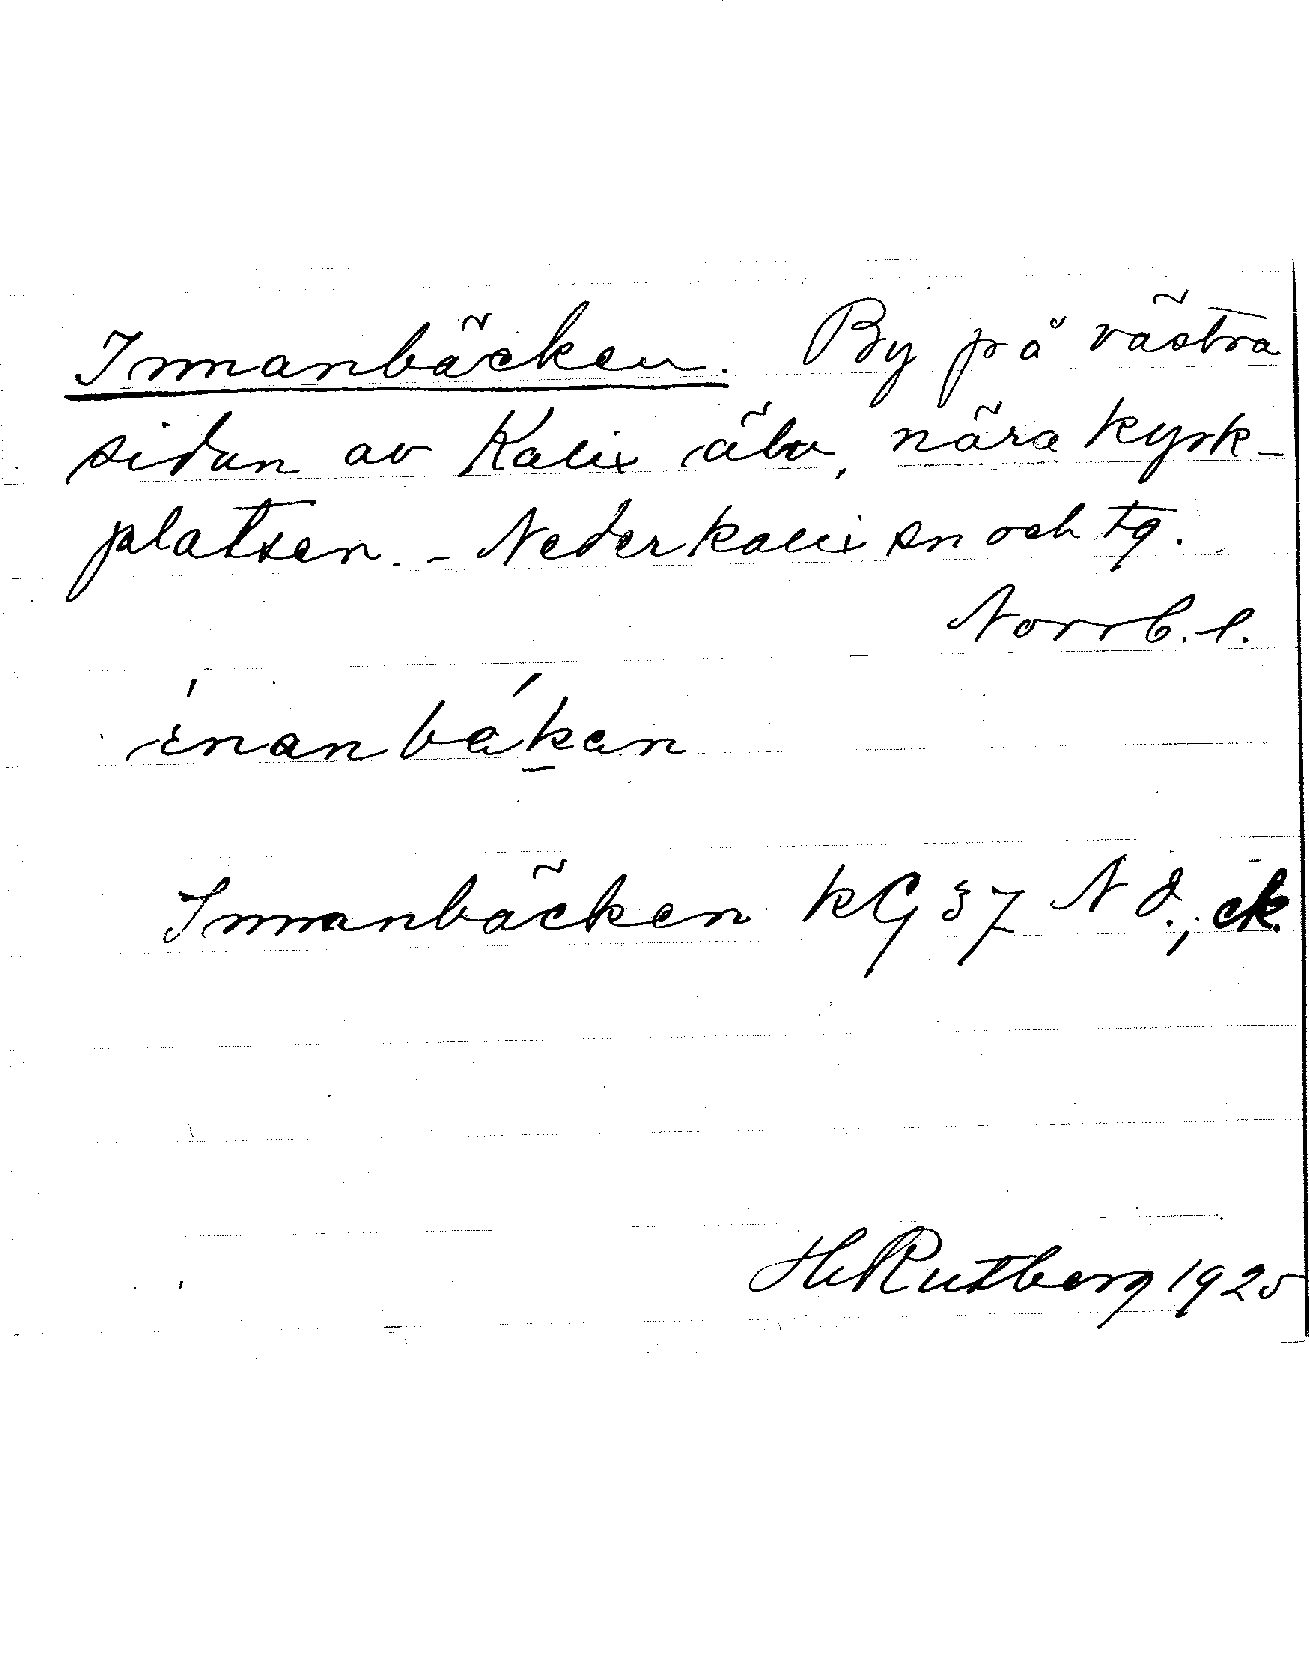 Innanbäcken. By på västra
sidan av Kalix älv, nära kyrk-
platsen. - Nederkalix sn och tg.
Norrb. l.
ínanbák̠an
Innanbäcken kG 37 N d., ek.
H. Rutberg 1925